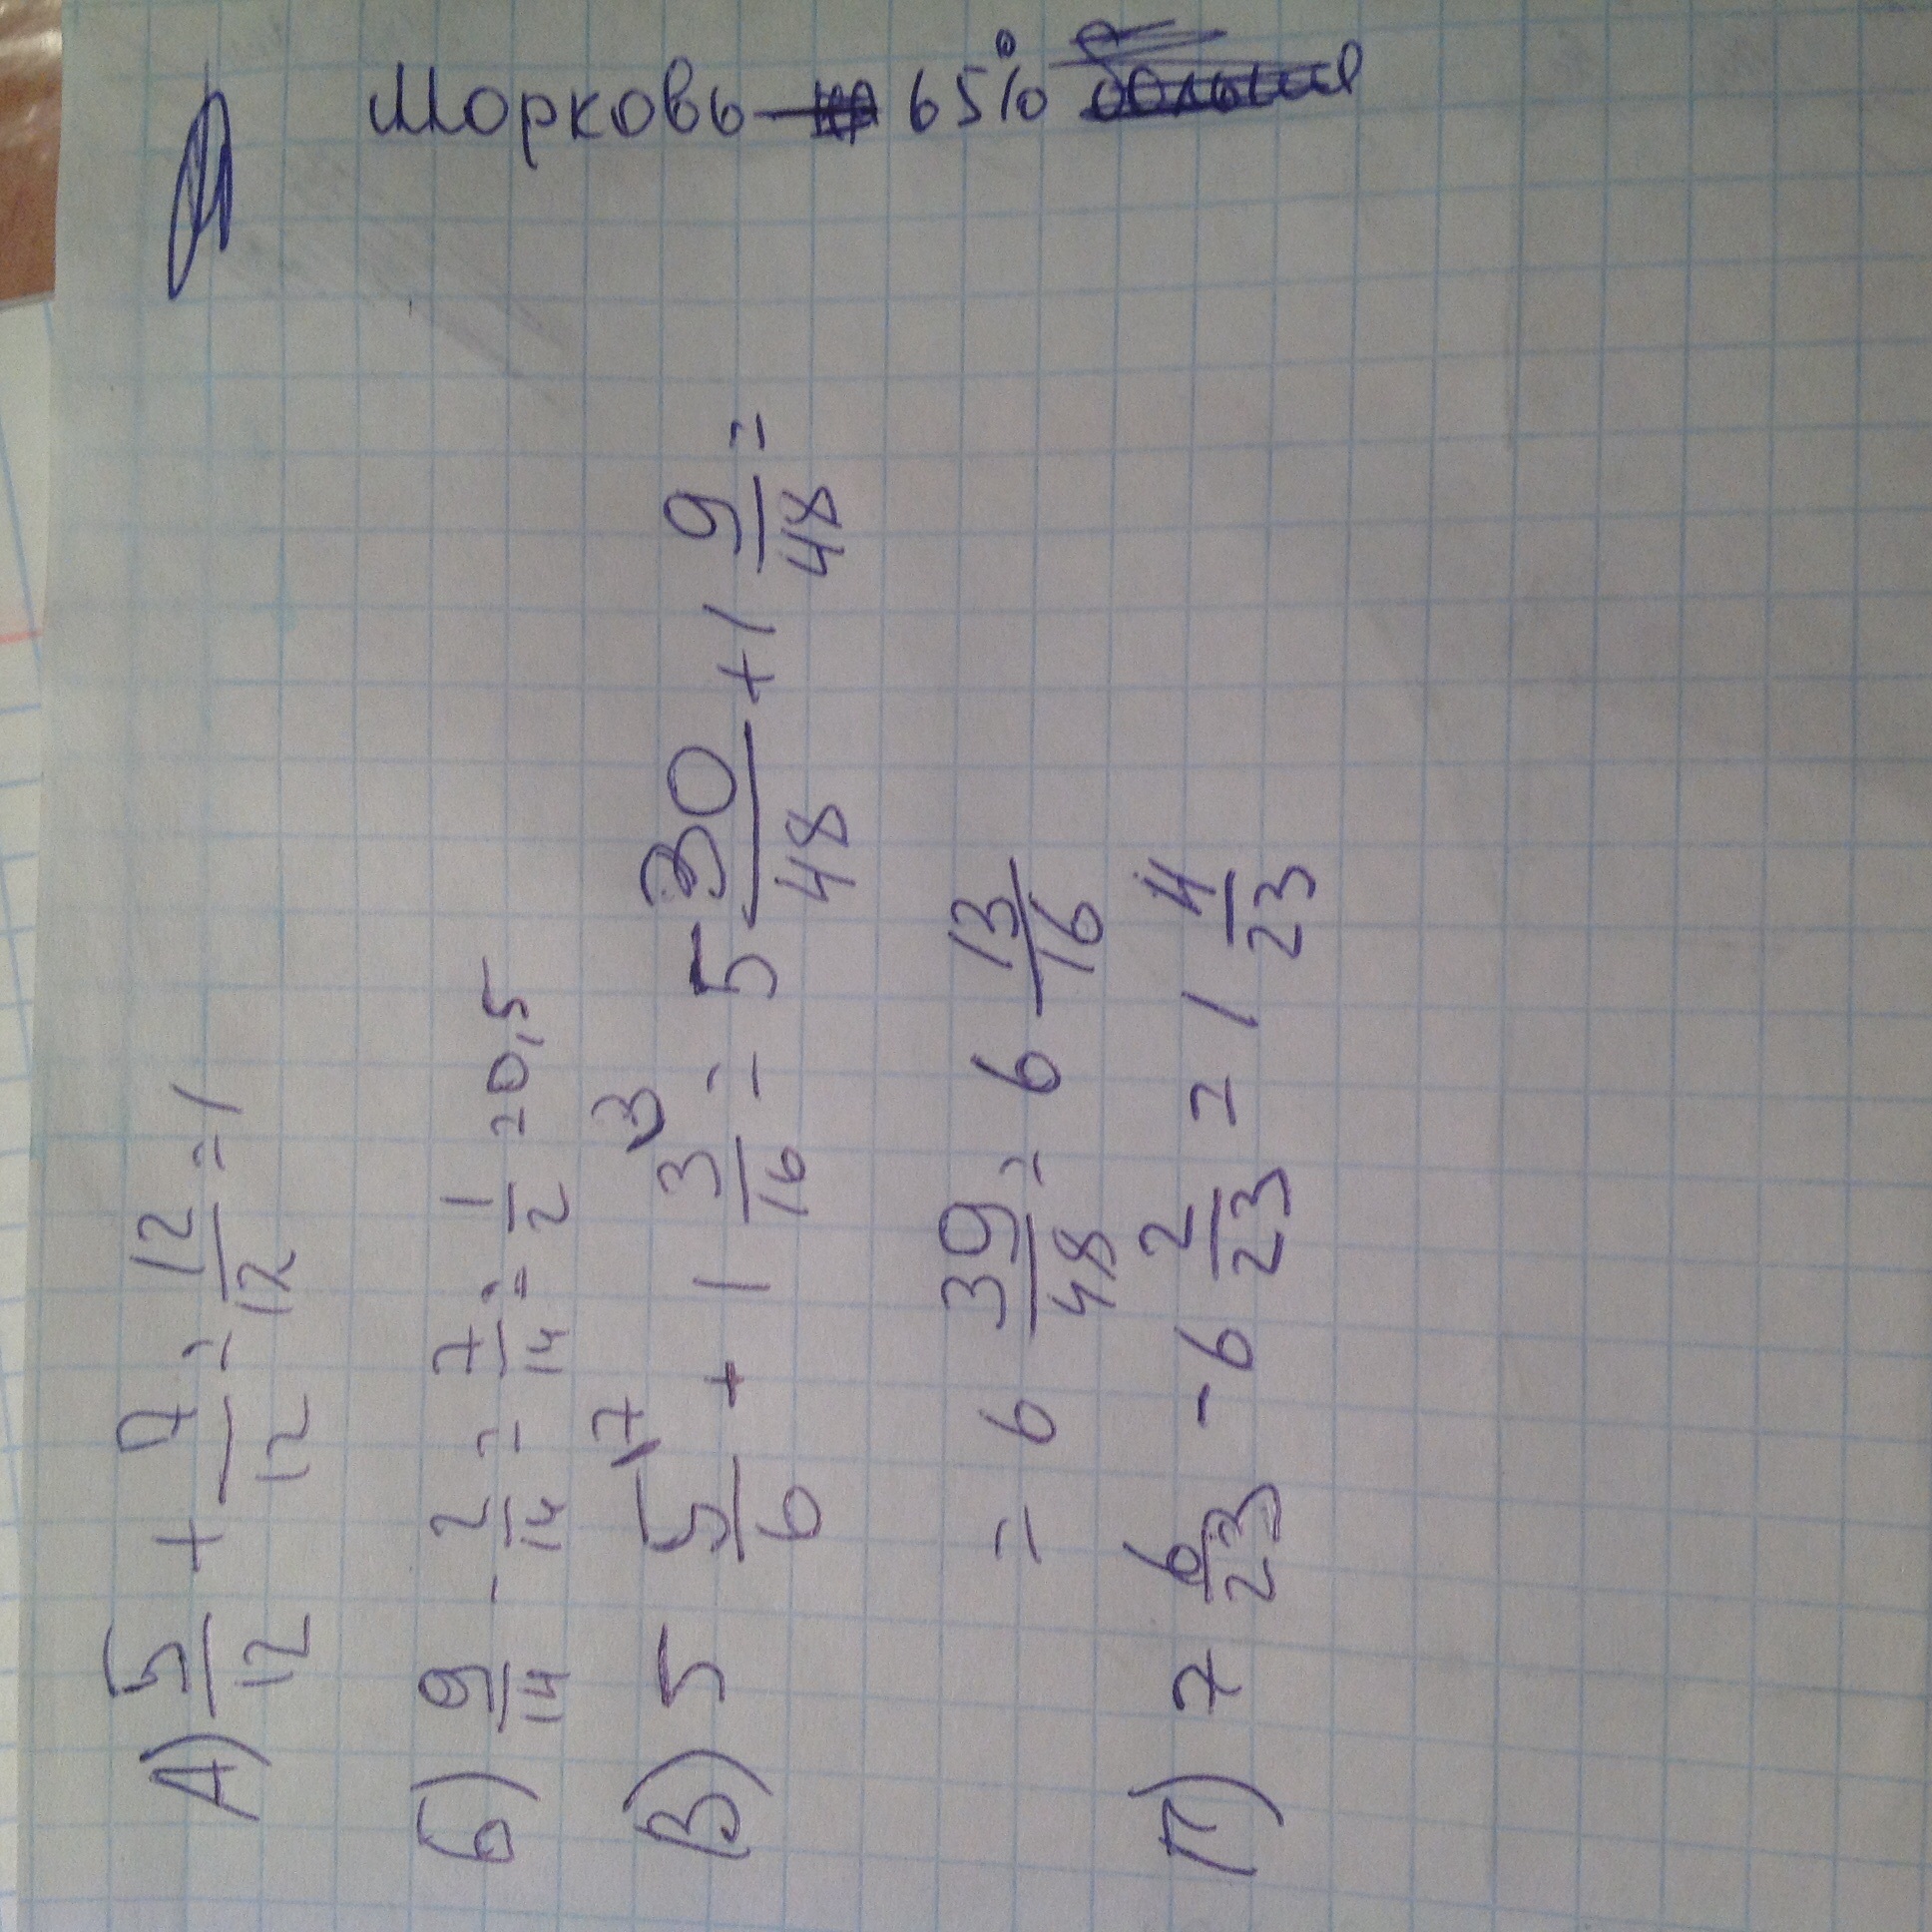 Морковь – 65%
А) 5/12 + 7/12 = 12/12 = 1
Б) 9/14 - 2/14 = 7/14 = 1/2 = 0,5
В) 5 5/6 \7 + 1 3/16 \3 = 5 30/48 + 1 9/48 =
= 6 39/48 = 6 13/16
Г) 7 6/23 - 6 2/23 = 1 4/23